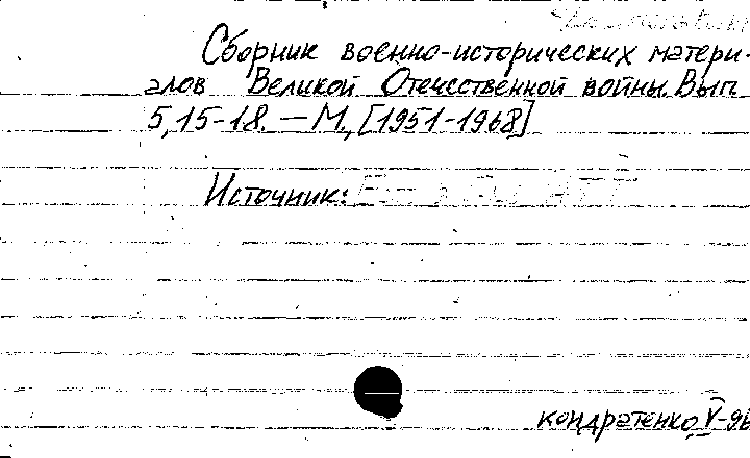 Сборник военно-исторических матери-
алов Великой Отечественной войны. Вып.
5, 15-18. — М., [1951-1968]
Источник:
Кондратенко V-96